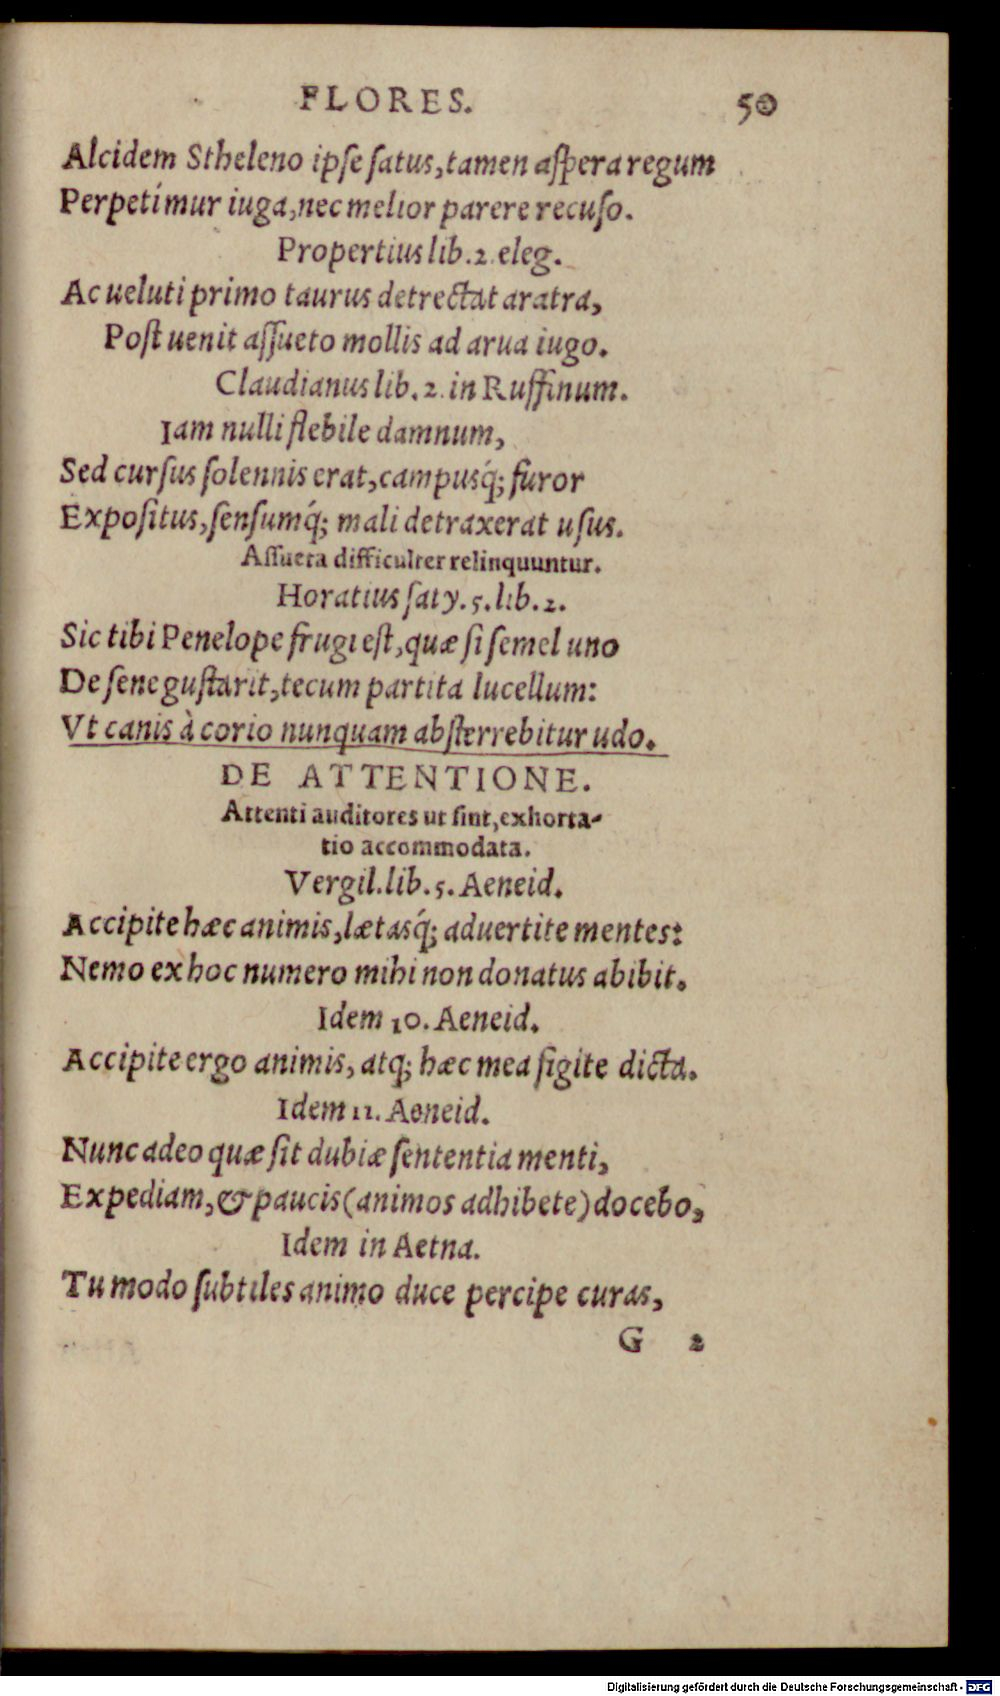 FLORES. 50
Alcidem Stheleno ipſe ſatus, tamen aſpera regum
Perpetímur iuga, nec melior parere recuſo.
Propertius lib. 2. eleg.
Ac ueluti primo taurus detrectat aratra,
Poſt uenit aſſueto mollis ad arua iugo.
Claudianus lib. 2. in Ruffinum.
Iam nulli flebile damnum,
Sed curſus ſolennis erat, campusq́; furor
Expoſitus, ſenſumq́; mali detraxerat uſus.
Aſſueta difficulter relinquuntur.
Horatius ſaty. 5. lib. 2.
Sic tibi Penelope frugi eſt, quæ ſi ſemel uno
De ſene guſtarit, tecum partita lucellum:
Vt canis à corio nunquam abſterrebitur udo.
DE ATTENTIONE.
Attenti auditores ut ſint, exhorta-
tio accommodata.
Vergil. lib. 5. Aeneid.
Accipite hæc animis, lætasq́; aduertite mentes:
Nemo ex hoc numero mihi non donatus abibit.
Idem 10. Aeneid.
Accipite ergo animis, atq; hæc mea figite dicta.
Idem 11. Aeneid.
Nunc adeo quæ ſit dubiæ ſententia menti,
Expediam, & paucis (animos adhibete) docebo,
Idem in Aetna.
Tu modo ſubtiles animo duce percipe curas,
G 2
Digitalisierung gefördert durch die Deutsche Forschungsgemeinschaft - DFG